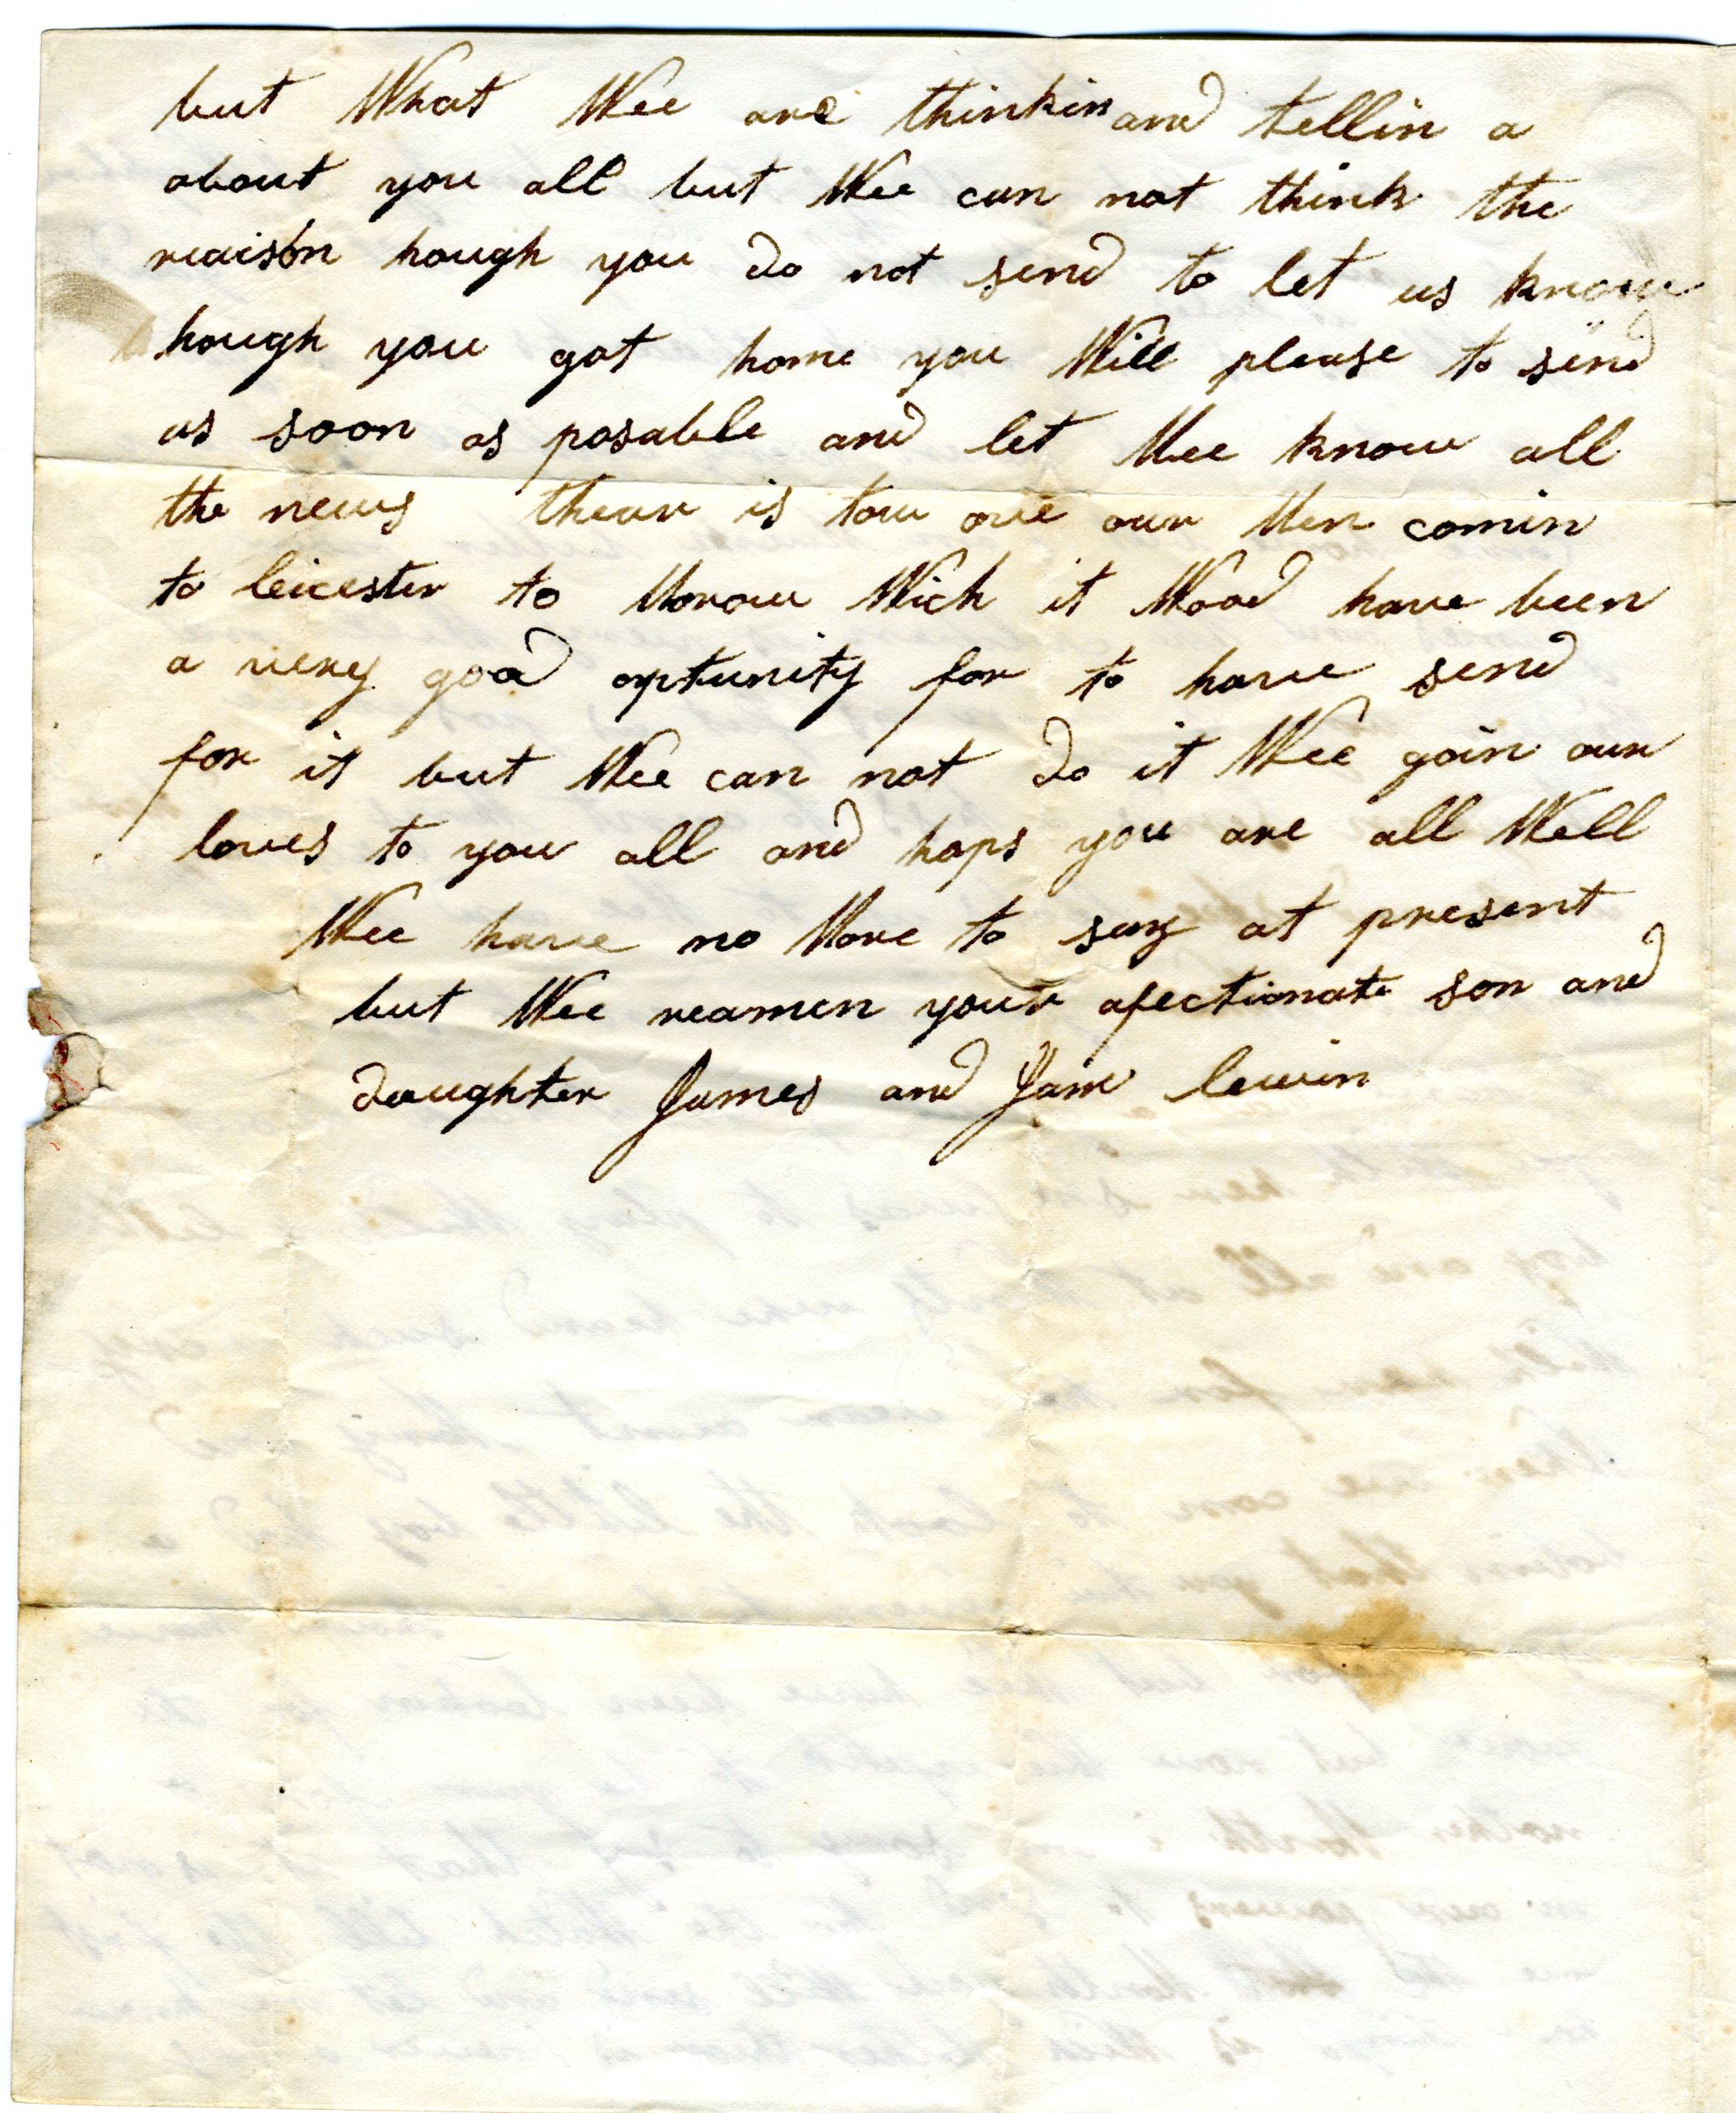 but What Wee are thinkin and tellin a
about you all but Wee can not think the
reaison hough you do not send to let us know
hough you got home you Will please to send
as soon as posable and let Mee know all
the news thear is tow ove our Men comin
to leicester to Morow Wich it Wood have been
a very good optunity for to have send
for it but Wee can not do it Wee goin our
loves to you all and hops you are all Well
Wee have no More to say at present
but Wee reamen your afectionate son and
daughter James and Jane lewin